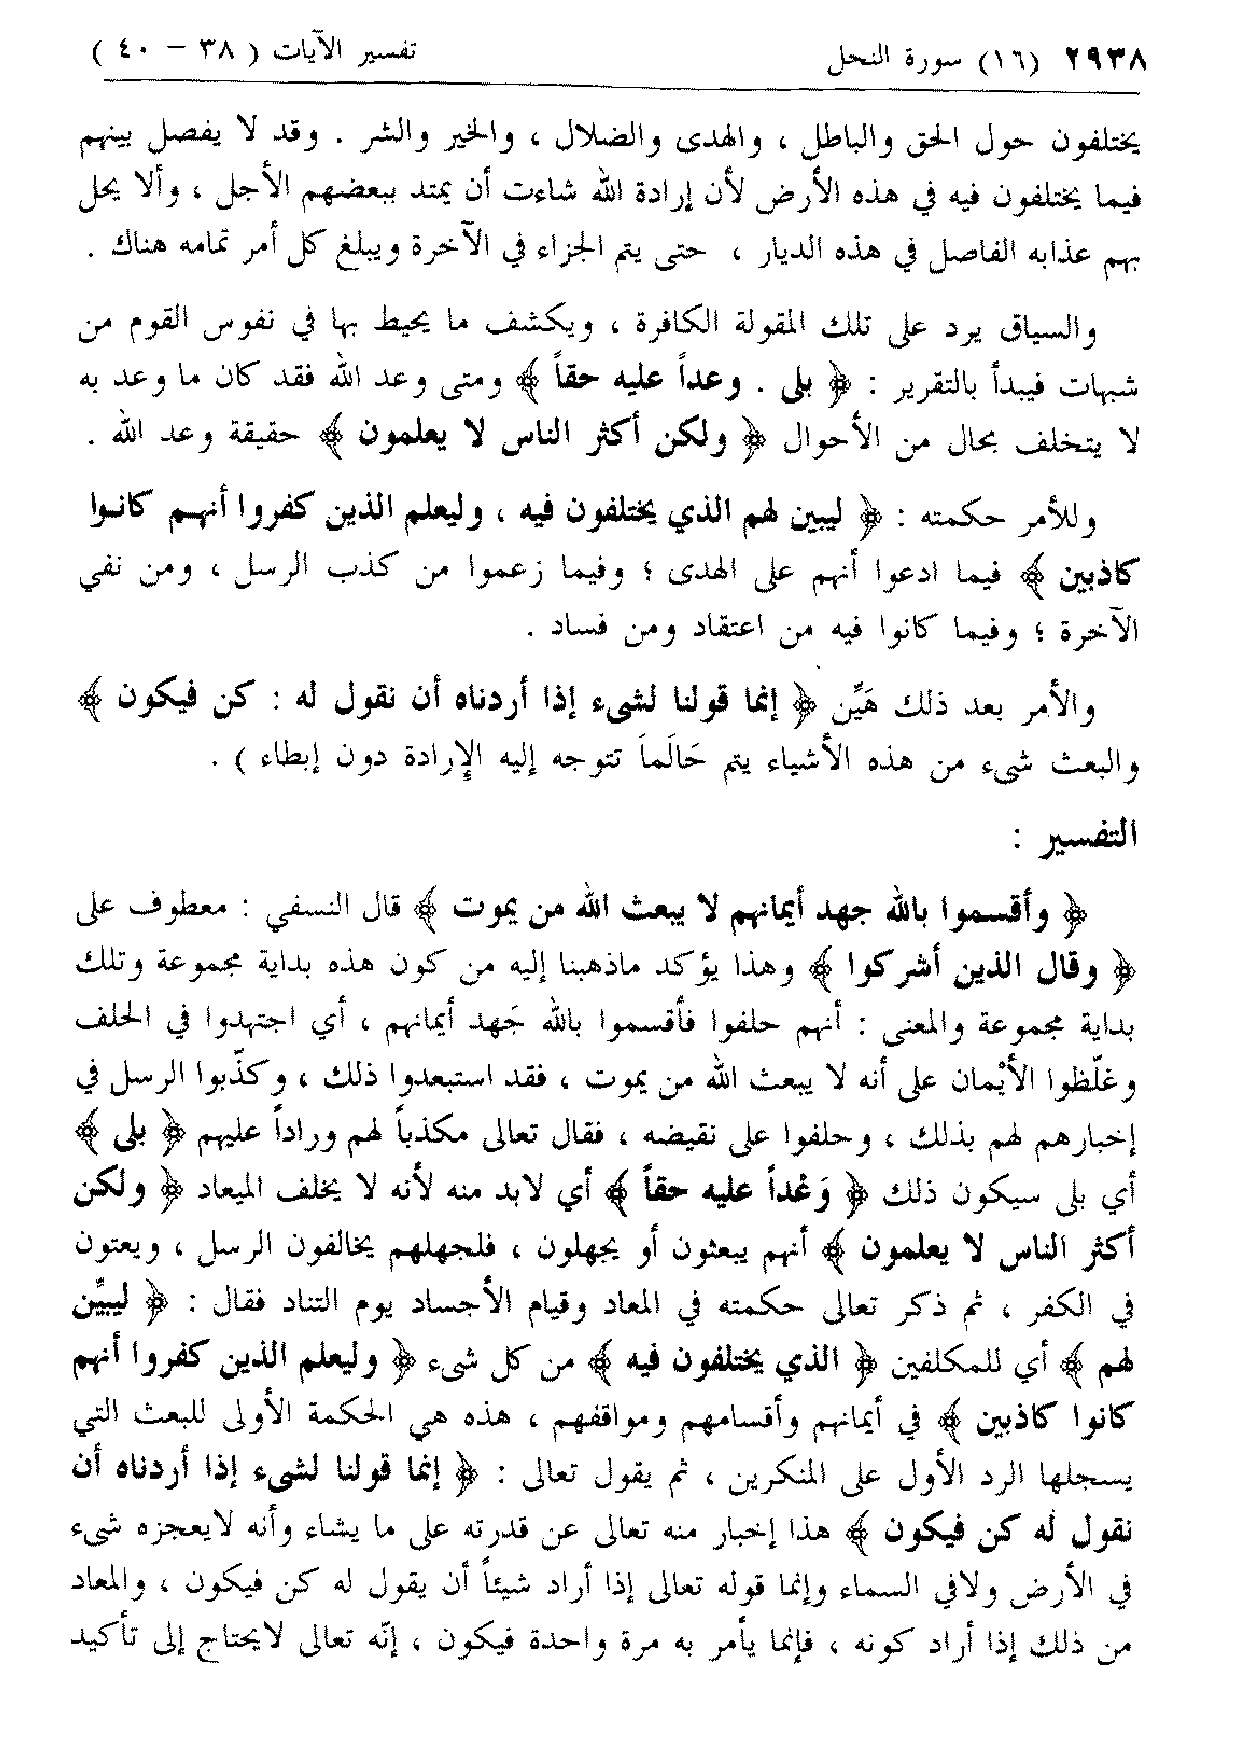 ٢٩٣٨ (١٦) سورة النحل تفسير الآيات ( ٣٨ – ٤٠ )
يختلفون حول الحق والباطل ، والهدى والضلال ، والخير والشر . وقد لا يفصل بينهم
فيما يختلفون فيه في هذه الأرض لأن إرادة الله شاءت أن يمتد ببعضهم الأجل ، وألا يحل
بهم عذابه الفاصل في هذه الديار ، حتى يتم الجزاء في الآخرة ويبلغ كل أمر تمامه هناك .
والسياق يرد على تلك المقولة الكافرة ، ويكشف ما يحيط بها في نفوس القوم من
شبهات فيبدأ بالتقرير : ﴿ بلى . وعداً عليه حقاً ﴾ ومتى وعد الله فقد كان ما وعد به
لا يتخلف بحال من الأحوال ﴿ ولكن أكثر الناس لا يعلمون ﴾ حقيقة وعد الله .
وللأمر حكمته : ﴿ ليبين لهم الذي يختلفون فيه ، وليعلم الذين كفروا أنهم كانوا
كاذبين ﴾ فيما ادعوا أنهم على الهدى ؛ وفيما زعموا من كذب الرسل ، ومن نفي
الآخرة ؛ وفيما كانوا فيه من اعتقاد ومن فساد .
والأمر بعد ذلك هَيِّن ﴿ إنما قولنا لشيء إذا أردناه أن نقول له : كن فيكون ﴾
والبعث شيء من هذه الأشياء يتم حَالَماَ تتوجه إليه الإِرادة دون إبطاء ) .
التفسير :
﴿ وأقسموا بالله جهد أيمانهم لا يبعث الله من يموت ﴾ قال النسفي : معطوف على
﴿ وقال الذين أشركوا ﴾ وهذا يؤكد ماذهبنا إليه من كون هذه بداية مجموعة وتلك
بداية مجموعة والمعنى : أنهم حلفوا فأقسموا بالله جَهد أيمانهم ، أي اجتهدوا في الحلف
وغلّظوا الأيْمان على أنه لا يبعث الله من يموت ، فقد استبعدوا ذلك ، وكذّبوا الرسل في
إخبارهم لهم بذلك ، وحلفوا على نقيضه ، فقال تعالى مكذباً لهم وراداً عليهم ﴿ بلى ﴾
أي بلى سيكون ذلك ﴿ وَعْداً عليه حقاً ﴾ أي لابد منه لأنه لا يخلف الميعاد ﴿ ولكن
أكثر الناس لا يعلمون ﴾ أنهم يبعثون أو يجهلون ، فلجهلهم يخالفون الرسل ، ويعتون
في الكفر ، ثم ذكر تعالى حكمته في المعاد وقيام الأجساد يوم التناد فقال : ﴿ ليبيِّن
لهم ﴾ أي للمكلفين ﴿ الذي يختلفون فيه ﴾ من كل شيء ﴿ وليعلم الذين كفروا أنهم
كانوا كاذبين ﴾ في أيمانهم وأقسامهم ومواقفهم ، هذه هي الحكمة الأولى للبعث التي
يسجلها الرد الأول على المنكرين ، ثم يقول تعالى : ﴿ إنما قولنا لشيء إذا أردناه أن
نقول له كن فيكون ﴾ هذا إخبار منه تعالى عن قدرته على ما يشاء وأنه لايعجزه شيء
في الأرض ولافي السماء وإنما قوله تعالى إذا أراد شيئاً أن يقول له كن فيكون ، والمعاد
من ذلك إذا أراد كونه ، فإنما يأمر به مرة واحدة فيكون ، إنّه تعالى لايحتاج إلى تأكيد